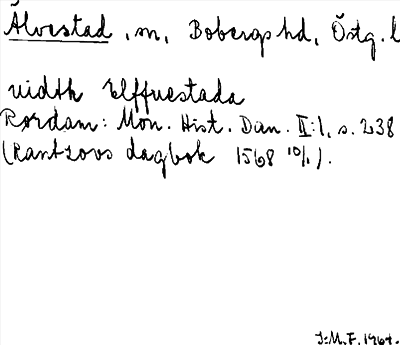 Älvestad, sn, Bobergs hd, Östg. l
vidth Elffvestada
Rørdam: Mon. Hist. Dan. II:1, s. 238
(Rantzovs dagbok 1568 10/1).
J.M.F. 1964.